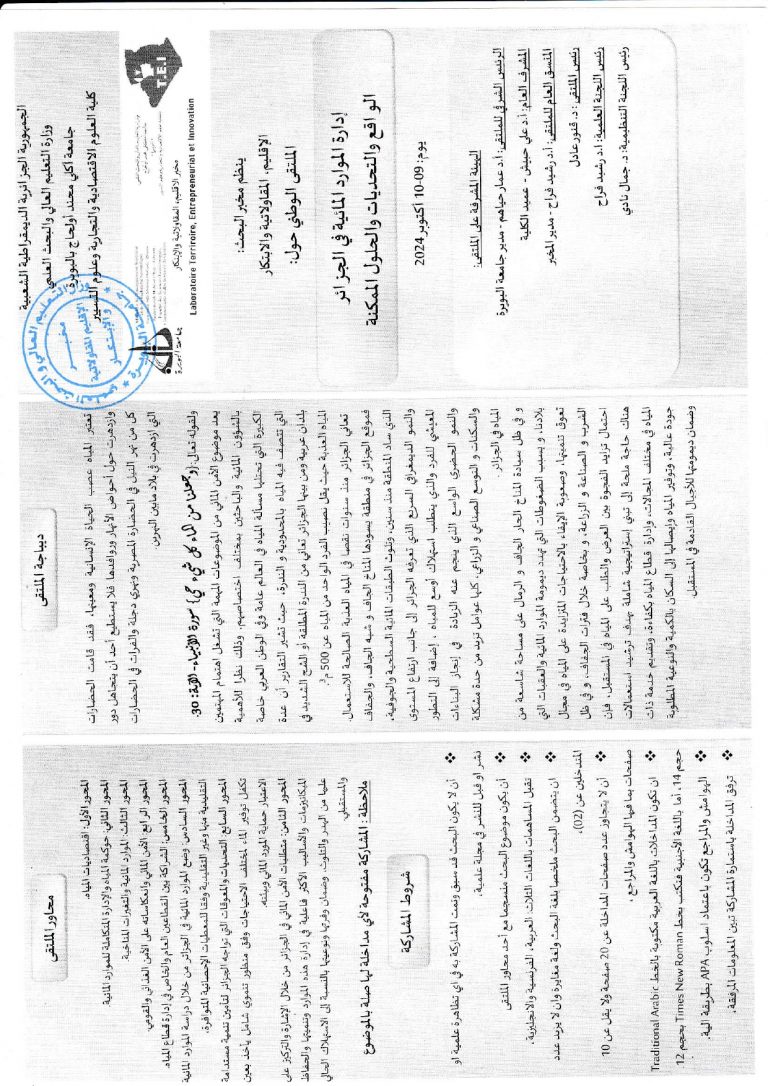 الجمهورية الجزائرية الديمقراطية الشعبية
وزارة التعليم العالي والبحث العلمي
جامعة أكلي محند أولحاج بالبويرة
كلية العلوم الاقتصادية والتجارية وعلوم التسيير
T.E.I
جامعة البويرة
مخبر الإقليم، المقاولاتية والإبتكار
Laboratoire Terriroire, Entrepreneuriat et Innovation
ينظم مخبر البحث:
الإقليم، المقاولاتية والابتكار
الملتقى الوطني حول:
إدارة الموارد المائية في الجزائر
الواقع والتحديات والحلول الممكنة
يوم: 09-10 أكتوبر 2024
الهيئة المشرفة على الملتقى:
الرئيس الشرفي للملتقى: أ.د عمار حياهم - مدير جامعة البويرة
المشرف العام: أ.د علي حبيش - عميد الكلية
المنسق العام للملتقى: أ.د رشيد فراح - مدير المخبر
رئيس الملتقى: د. قنور عادل
رئيس اللجنة العلمية: أ.د رشيد فراح
رئيس اللجنة التنظيمية: د. جمال نادي
ديباجة الملتقى
تعتبر المياه عصب الحياة الإنسانية ومعينها، فقد قامت الحضارات
وازدهرت حول أحواض الأنهار وروافدها فلا يستطيع أحد أن يتجاهل دور
كل من نهر النيل في الحضارة المصرية ونهري دجلة والفرات في الحضارات
التي ازدهرت في بلاد ما بين النهرين
ولقوله تعالى ﴿وجعلنا من الماء كل شيء حي﴾ سورة الأنبياء- الآية: 30.
يعد موضوع الأمن المائي من الموضوعات المهمة التي تشغل اهتمام المهتمين
بالشؤون المائية والباحثين بمختلف اختصاصهم، وذلك نظرا للأهمية
الكبيرة التي تحتلها مسألة المياه في العالم عامة وفي الوطن العربي خاصة
التي تتصف فيه المياه بالمحدودية و الندرة، حيث تشير التقارير أن عدة
بلدان عربية ومن بينها الجزائر تعاني من الندرة المطلقة أو الشح الشديد في
المياه العذبة حيث يقل نصيب الفرد الواحد من المياه عن 500 م³.
تعاني الجزائر منذ سنوات نقصا في المياه العذبة الصالحة للاستعمال
فموقع الجزائر في منطقة يسودها المناخ الجاف و شبه الجاف، والجفاف
الذي ساد المنطقة منذ سنين، وتلوث الطبقات المائية السطحية والجوفية،
والنمو الديمغرافي السريع الذي تعرفه الجزائر إلى جانب ارتفاع المستوى
المعيشي للفرد والذي يتطلب استهلاك أوسع للمياه ، إضافة إلى التطور
والنمو الحضري الواسع الذي ينجم عنه الزيادة في إنجاز البناءات
والسكنات و التوسع الصناعي و الزراعي كلها عوامل تزيد من حدة مشكلة
المياه في الجزائر.
و في ظل سيادة المناخ الحار، الجاف و الرمال على مساحة شاسعة من
بلادنا، و بسبب الضغوطات التي تهدد ديمومة الموارد المائية والعقبات التي
تعوق تنميتها، وصعوبة الإيفاء بالاحتياجات المتزايدة على المياه في مجال
الشرب و الصناعة و الزراعة، و بخاصة خلال فترات الجفاف، و في ظل
احتمال تزايد الفجوة بين العرض والطلب على المياه في المستقبل، فإن
هناك حاجة ملحة إلى تبني إستراتيجية شاملة بهدف ترشيد استعمالات
المياه في مختلف المجالات، وإدارة قطاع المياه بكفاءة، وتقديم خدمة ذات
جودة عالية، وتوفير المياه وإيصالها إلى السكان بالكمية والنوعية المطلوبة
وضمان ديمومتها للأجيال القادمة في المستقبل.
محاور الملتقى
المحور الأول: اقتصاديات المياه.
المحور الثاني: حوكمة المياه والإدارة المتكاملة للموارد المائية
المحور الثالث: الموارد المائية والتغيرات المناخية.
المحور الرابع: الأمن المائي وانعكاساته على الأمن الغذائي والقومي.
المحور الخامس: الشراكة بين القطاعين العام والخاص في إدارة قطاع المياه.
المحور السادس: وضع الموارد المائية في الجزائر من خلال دراسة الموارد المائية
التقليدية منها وغير التقليدية وفقا للمعطيات الإحصائية المتوافرة.
المحور السابع: التحديات والمعوقات التي تواجه الجزائر لتأمين تنمية مستدامة
تكفل توفير الماء لمختلف الاحتياجات وفق منظور تنموي شامل يأخذ بعين
الاعتبار حماية المورد المائي وبيئته.
المحور الثامن: متطلبات الأمن المائي في الجزائر من خلال الإشارة والتركيز على
الميكانيزمات والأساليب الأكثر فاعلية في إدارة هذه الموارد وتنميتها والحفاظ
عليها من الهدر والتلوث، وضمان وفرتها ونوعيتها بالنسبة إلى الاستهلاك الحالي
والمستقبلي.
ملاحظة : المشاركة مفتوحة لأي مداخلة لها صلة بالموضوع
شروط المشاركة
❖ أن لا يكون البحث قد سبق وتمت المشاركة به في أي تظاهرة علمية أو
نشر أو قبل للنشر في مجلة علمية.
❖ أن يكون موضوع البحث منسجما مع أحد محاور الملتقى
❖ تقبل المساهمات باللغات الثلاث: العربية، الفرنسية والانجليزية.
❖ ان يتضمن البحث ملخصا بلغة البحث ولغة مغايرة وان لا يزيد عدد
المتدخلين عن (02).
❖ أن لا يتجاوز عدد صفحات المداخلة عن 20 صفحة ولا يقل عن 10
صفحات بما فيها الهوامش والمراجع .
❖ ان تكون المداخلات باللغة العربية مكتوبة بالخط Traditional Arabic
حجم 14، أما باللغة الأجنبية فتكتب بخط Times New Roman بحجم 12
❖ الهوامش والمراجع تكون باعتماد أسلوب APA بطريقة آلية.
❖ ترفق المداخلة باستمارة المشاركة تبين المعلومات المرفقة.